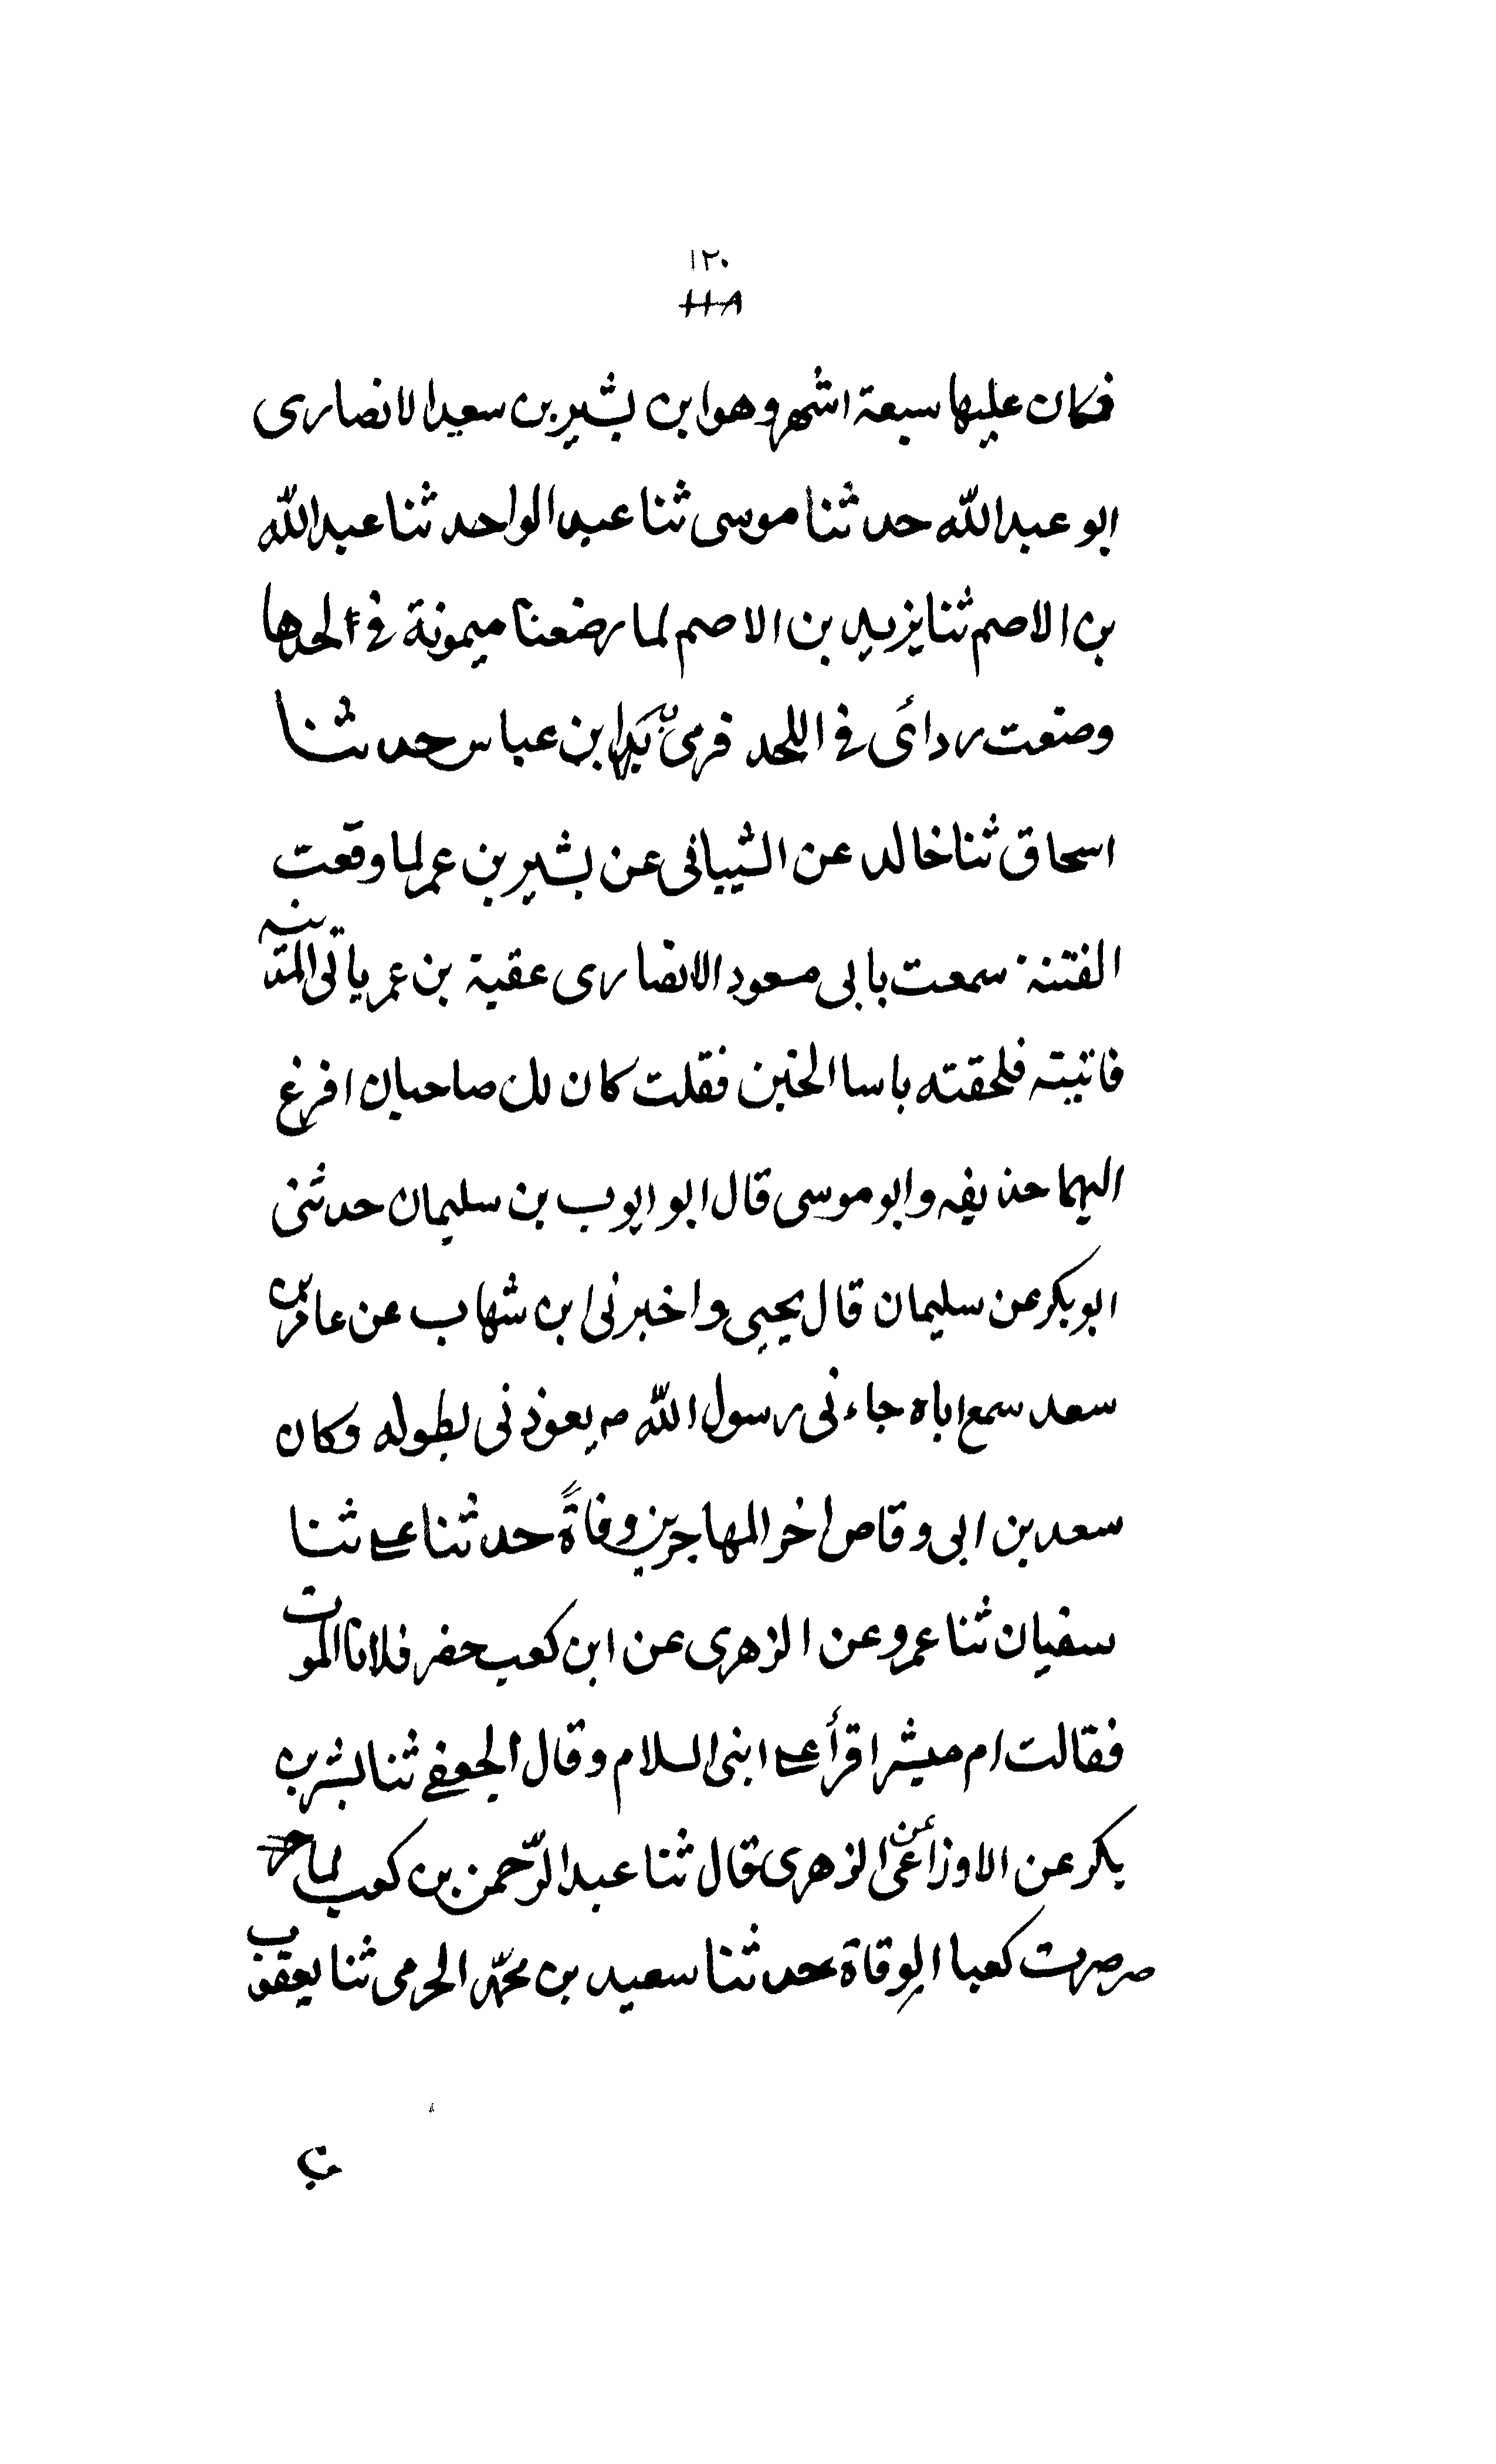 ١٢٠
١١٨
فكان عليها سبعة اشهر وهو ابن بشير بن سعيد الانصارى
ابو عبد الله حدثنا موسى ثنا عبد الواحد ثنا عبد الله
بن الاصم ثنا يزيد بن الاصم لما رضعنا ميمونة فى الحدها
وضعت ردائى فى اللحد فرمى به ابن عباس حدثنا
اسحاق ثنا خالد عن الشيبانى عن بشير بن عمر لما وقعت
الفتنة سمعت بابى مسعود الانصارى عقبة بن عمر ياتى المدينه
فاتيته فلحقته باسا الحنين فقلت كان لك صاحبان افرغ
اليهما حذيفه وابو موسى قال ابو ايوب بن سليمان حدثنى
ابو بكر عن سليمان قال يحيى واخبرنى ابن شهاب عن عامر بن
سعد سمع اباه جاءنى رسول الله ص يعوذنى بطوله وكان
سعد بن ابى وقاص اخر المهاجرين وفاةً حدثنا على ثنا
سفيان ثنا عمرو عن الزهرى عن ابن كعب حضر فلانا الموت
فقالت ام مبشر اقرأ على ابنى السلام وقال الجعفى ثنا بشر بن
بكر عن الاوزاعى عن الزهرى قال ثنا عبد الرّحمن بن كعب لما
حضرت كعبا الوفاة حدثنا سعيد بن محمّد الجرمى ثنا يعقوب